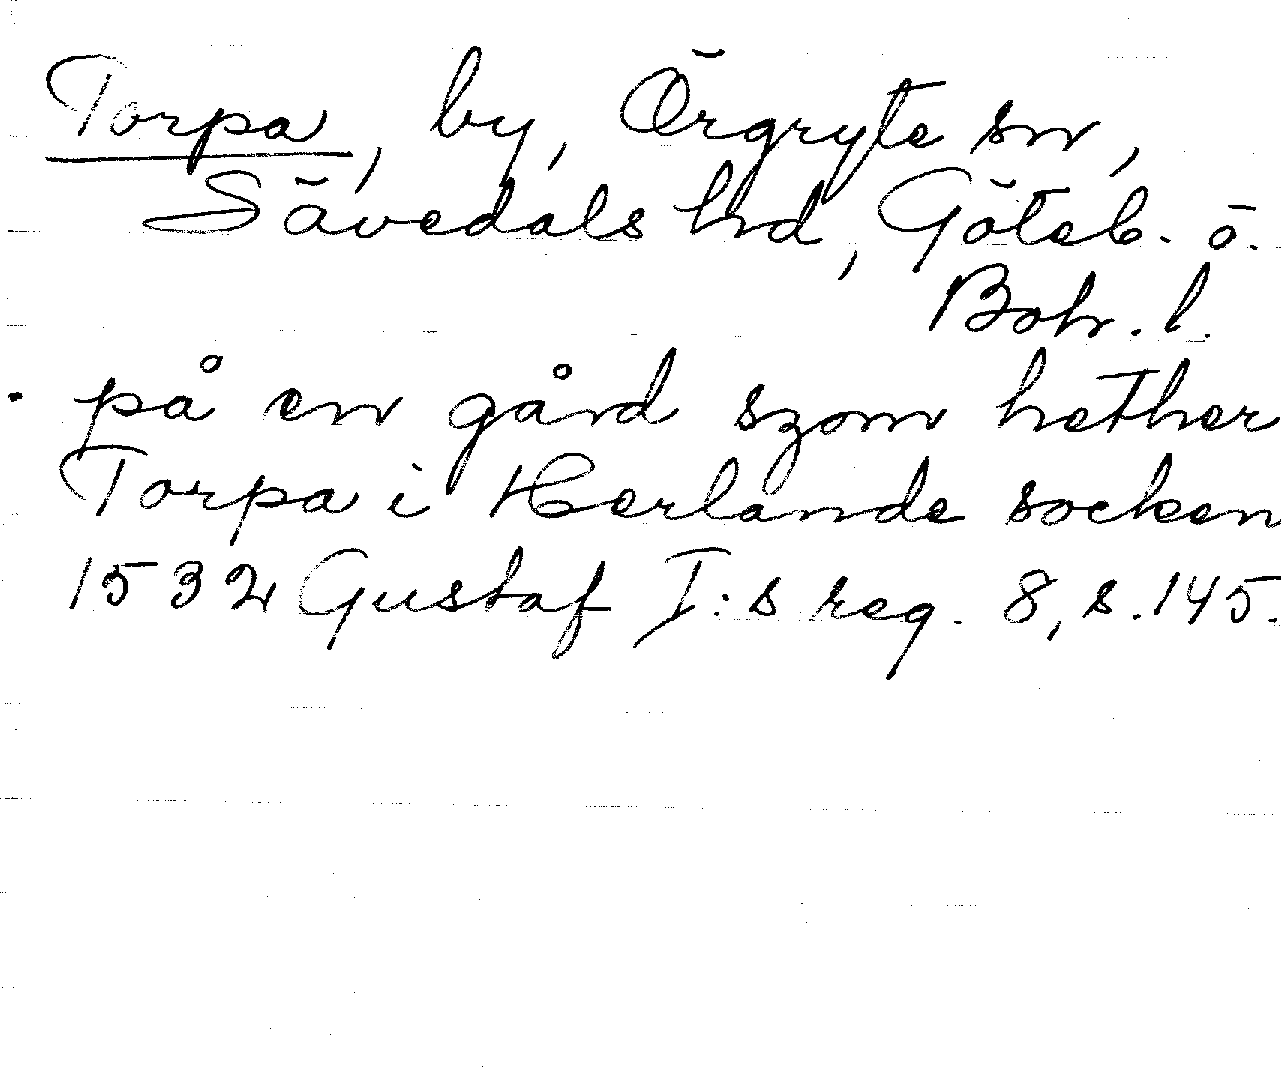 Torpa, by, Örgryte sn,
Sävedals hd, Göteb. o.
Boh. l.
. på en gård szom hether
Torpa i Herlande socken
1532 Gustaf I:s reg. 8, s. 145.